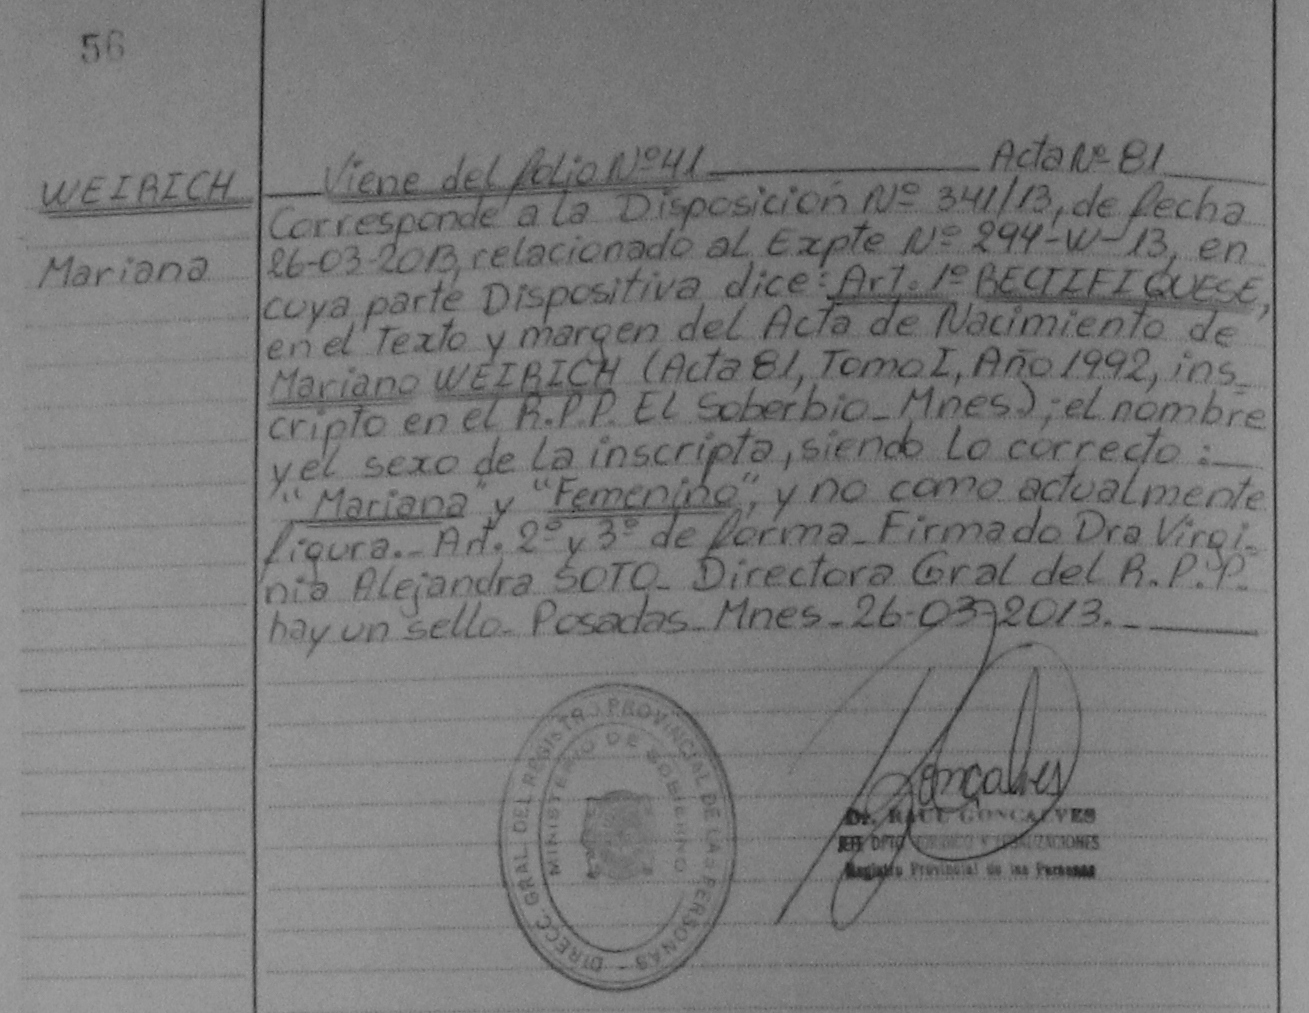 56
WEIRICH
Mariana
Viene del folio Nº 41 Acta Nº 81
Corresponde a la Disposición Nº 341/13, de fecha
26-03-2013, relacionado al Expte Nº 294-W-13, en
cuya parte Dispositiva dice: Art. 1º RECTIFIQUESE,
en el Texto y margen del Acta de Nacimiento de
Mariano WEIRICH (Acta 81, Tomo I, Año 1992, ins-
cripto en el R.P.P. El Soberbio_Mnes); el nombre
y el sexo de la inscripta, siendo lo correcto:
"Mariana" y "Femenino", y no como actualmente
figura._ Art. 2º y 3º de forma_ Firmado Dra Virgi-
nia Alejandra SOTO_ Directora Gral del R.P.P.
hay un sello_ Posadas_Mnes_26-03-2013._
DIRECC. GRAL. DEL REGISTRO PROVINCIAL DE LAS PERSONAS -
MINISTERIO DE GOBIERNO
Goncalves
Dr. RAUL GONCALVES
JEFE DPTO. Y LEGALIZACIONES
Registro Provincial de las Personas